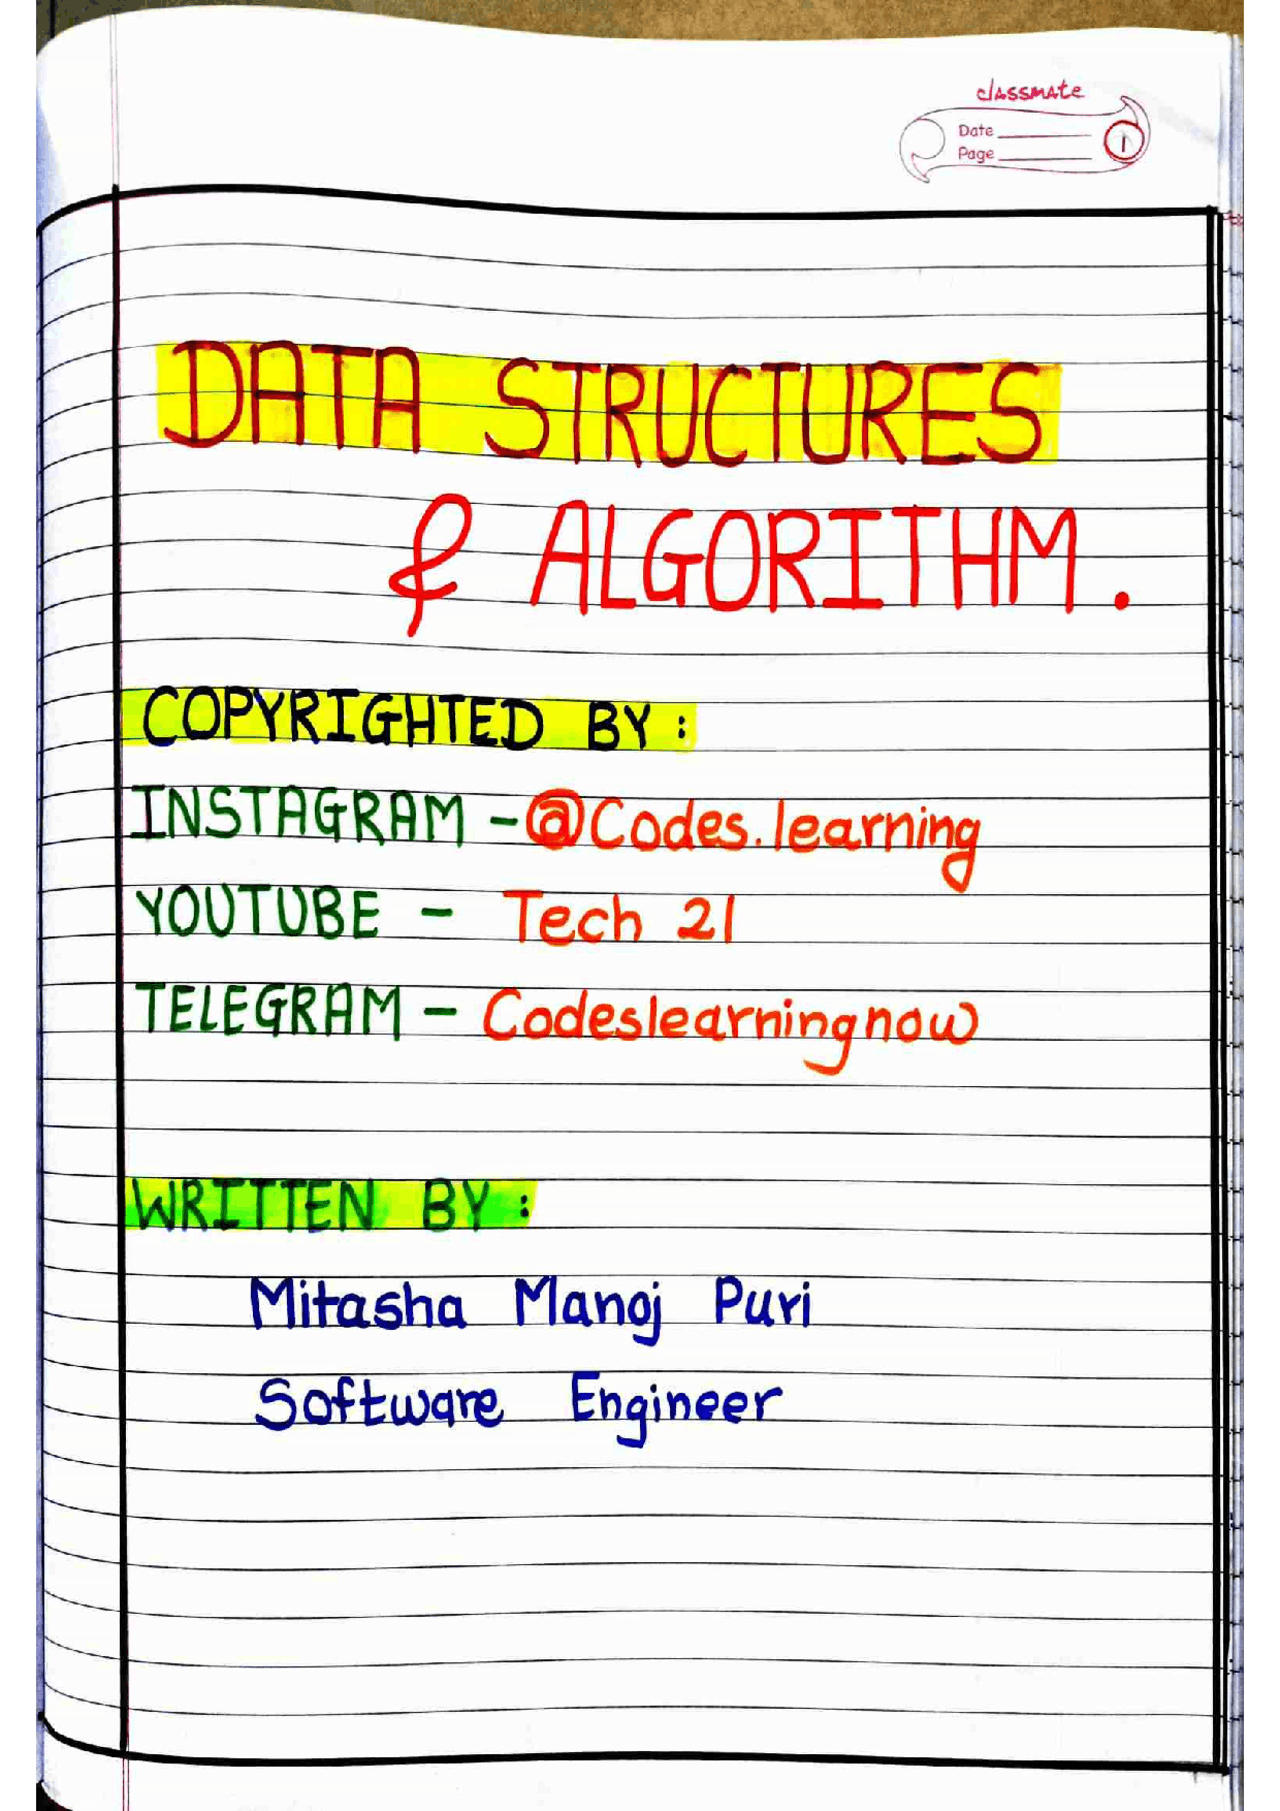 classmate
Date
Page
1
DATA STRUCTURES
& ALGORITHM.
COPYRIGHTED BY :
INSTAGRAM - @Codes.learning
YOUTUBE - Tech 21
TELEGRAM - Codeslearningnow
WRITTEN BY :
Mitasha Manoj Puri
Software Engineer